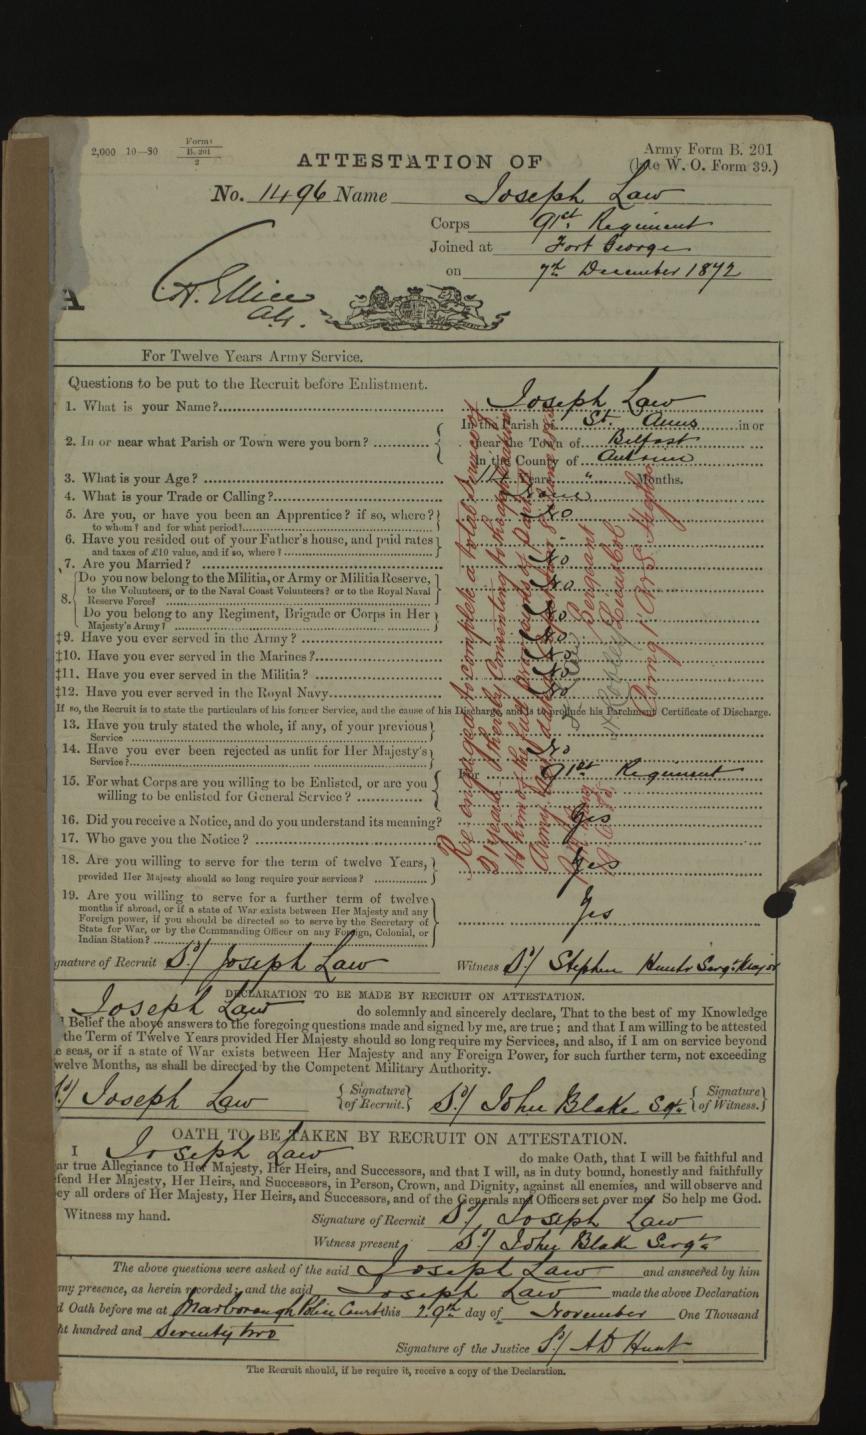 2,000 10—80 Form B. 201 2
ATTESTATION OF
Army Form B. 201
(late W. O. Form 39.)
No. 1496 Name Joseph Law
Corps 91st Regiment
Joined at Fort George
on 7th December 1872
A
For Twelve Years Army Service.
Questions to be put to the Recruit before Enlistment.
1. What is your Name? Joseph Law
2. In or near what Parish or Town were you born? In the Parish of St. Anns in or
near the Town of Belfast
in the County of Antrim
3. What is your Age? Years " Months.
4. What is your Trade or Calling?
5. Are you, or have you been an Apprentice? if so, where? No
to whom? and for what period?
6. Have you resided out of your Father's house, and paid rates "
and taxes of £10 value, and if so, where? No
7. Are you Married? No
8. Do you now belong to the Militia, or Army or Militia Reserve,
to the Volunteers, or to the Naval Coast Volunteers? or to the Royal Naval
Reserve Force? No
Do you belong to any Regiment, Brigade or Corps in Her
Majesty's Army? No
‡9. Have you ever served in the Army? No
‡10. Have you ever served in the Marines? No
‡11. Have you ever served in the Militia? No
‡12. Have you ever served in the Royal Navy No
If so, the Recruit is to state the particulars of his former Service, and the cause of his Discharge, and is to produce his Parchment Certificate of Discharge.
13. Have you truly stated the whole, if any, of your previous
Service
14. Have you ever been rejected as unfit for Her Majesty's No
Service?
15. For what Corps are you willing to be Enlisted, or are you For 91st Regiment
willing to be enlisted for General Service?
16. Did you receive a Notice, and do you understand its meaning? Yes
17. Who gave you the Notice?
18. Are you willing to serve for the term of twelve Years, Yes
provided Her Majesty should so long require your services?
19. Are you willing to serve for a further term of twelve
months if abroad, or if a state of War exists between Her Majesty and any
Foreign power, if you should be directed so to serve by the Secretary of
State for War, or by the Commanding Officer on any Foreign, Colonial, or
Indian Station? Yes
Re engaged to complete a total service of
21 years
Sergeant
Comg 1st
gnature of Recruit Sd/ Joseph Law Witness Sd/ Stephen Hunter Sergt Major
DECLARATION TO BE MADE BY RECRUIT ON ATTESTATION.
Joseph Law do solemnly and sincerely declare, That to the best of my Knowledge
Belief the above answers to the foregoing questions made and signed by me, are true; and that I am willing to be attested
the Term of Twelve Years provided Her Majesty should so long require my Services, and also, if I am on service beyond
e seas, or if a state of War exists between Her Majesty and any Foreign Power, for such further term, not exceeding
welve Months, as shall be directed by the Competent Military Authority.
Joseph Law Signature of Recruit. Sd/ John Blake Sgt Signature of Witness.
OATH TO BE TAKEN BY RECRUIT ON ATTESTATION.
I Joseph Law do make Oath, that I will be faithful and
ar true Allegiance to Her Majesty, Her Heirs, and Successors, and that I will, as in duty bound, honestly and faithfully
fend Her Majesty, Her Heirs, and Successors, in Person, Crown, and Dignity, against all enemies, and will observe and
ey all orders of Her Majesty, Her Heirs, and Successors, and of the Generals and Officers set over me. So help me God.
Witness my hand. Signature of Recruit Sd/ Joseph Law
Witness present Sd/ John Blake Sergt
The above questions were asked of the said Joseph Law and answered by him
my presence, as herein recorded; and the said Joseph Law made the above Declaration
d Oath before me at Marborough Police Court this 29th day of November One Thousand
ht hundred and Seventy two
Signature of the Justice Sd/ A D Hunt
The Recruit should, if he require it, receive a copy of the Declaration.